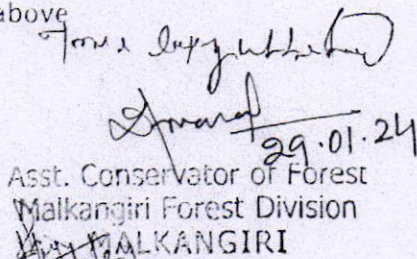 above
True copy attested
29.01.24
Asst. Conservator of Forest
Malkangiri Forest Division
MALKANGIRI